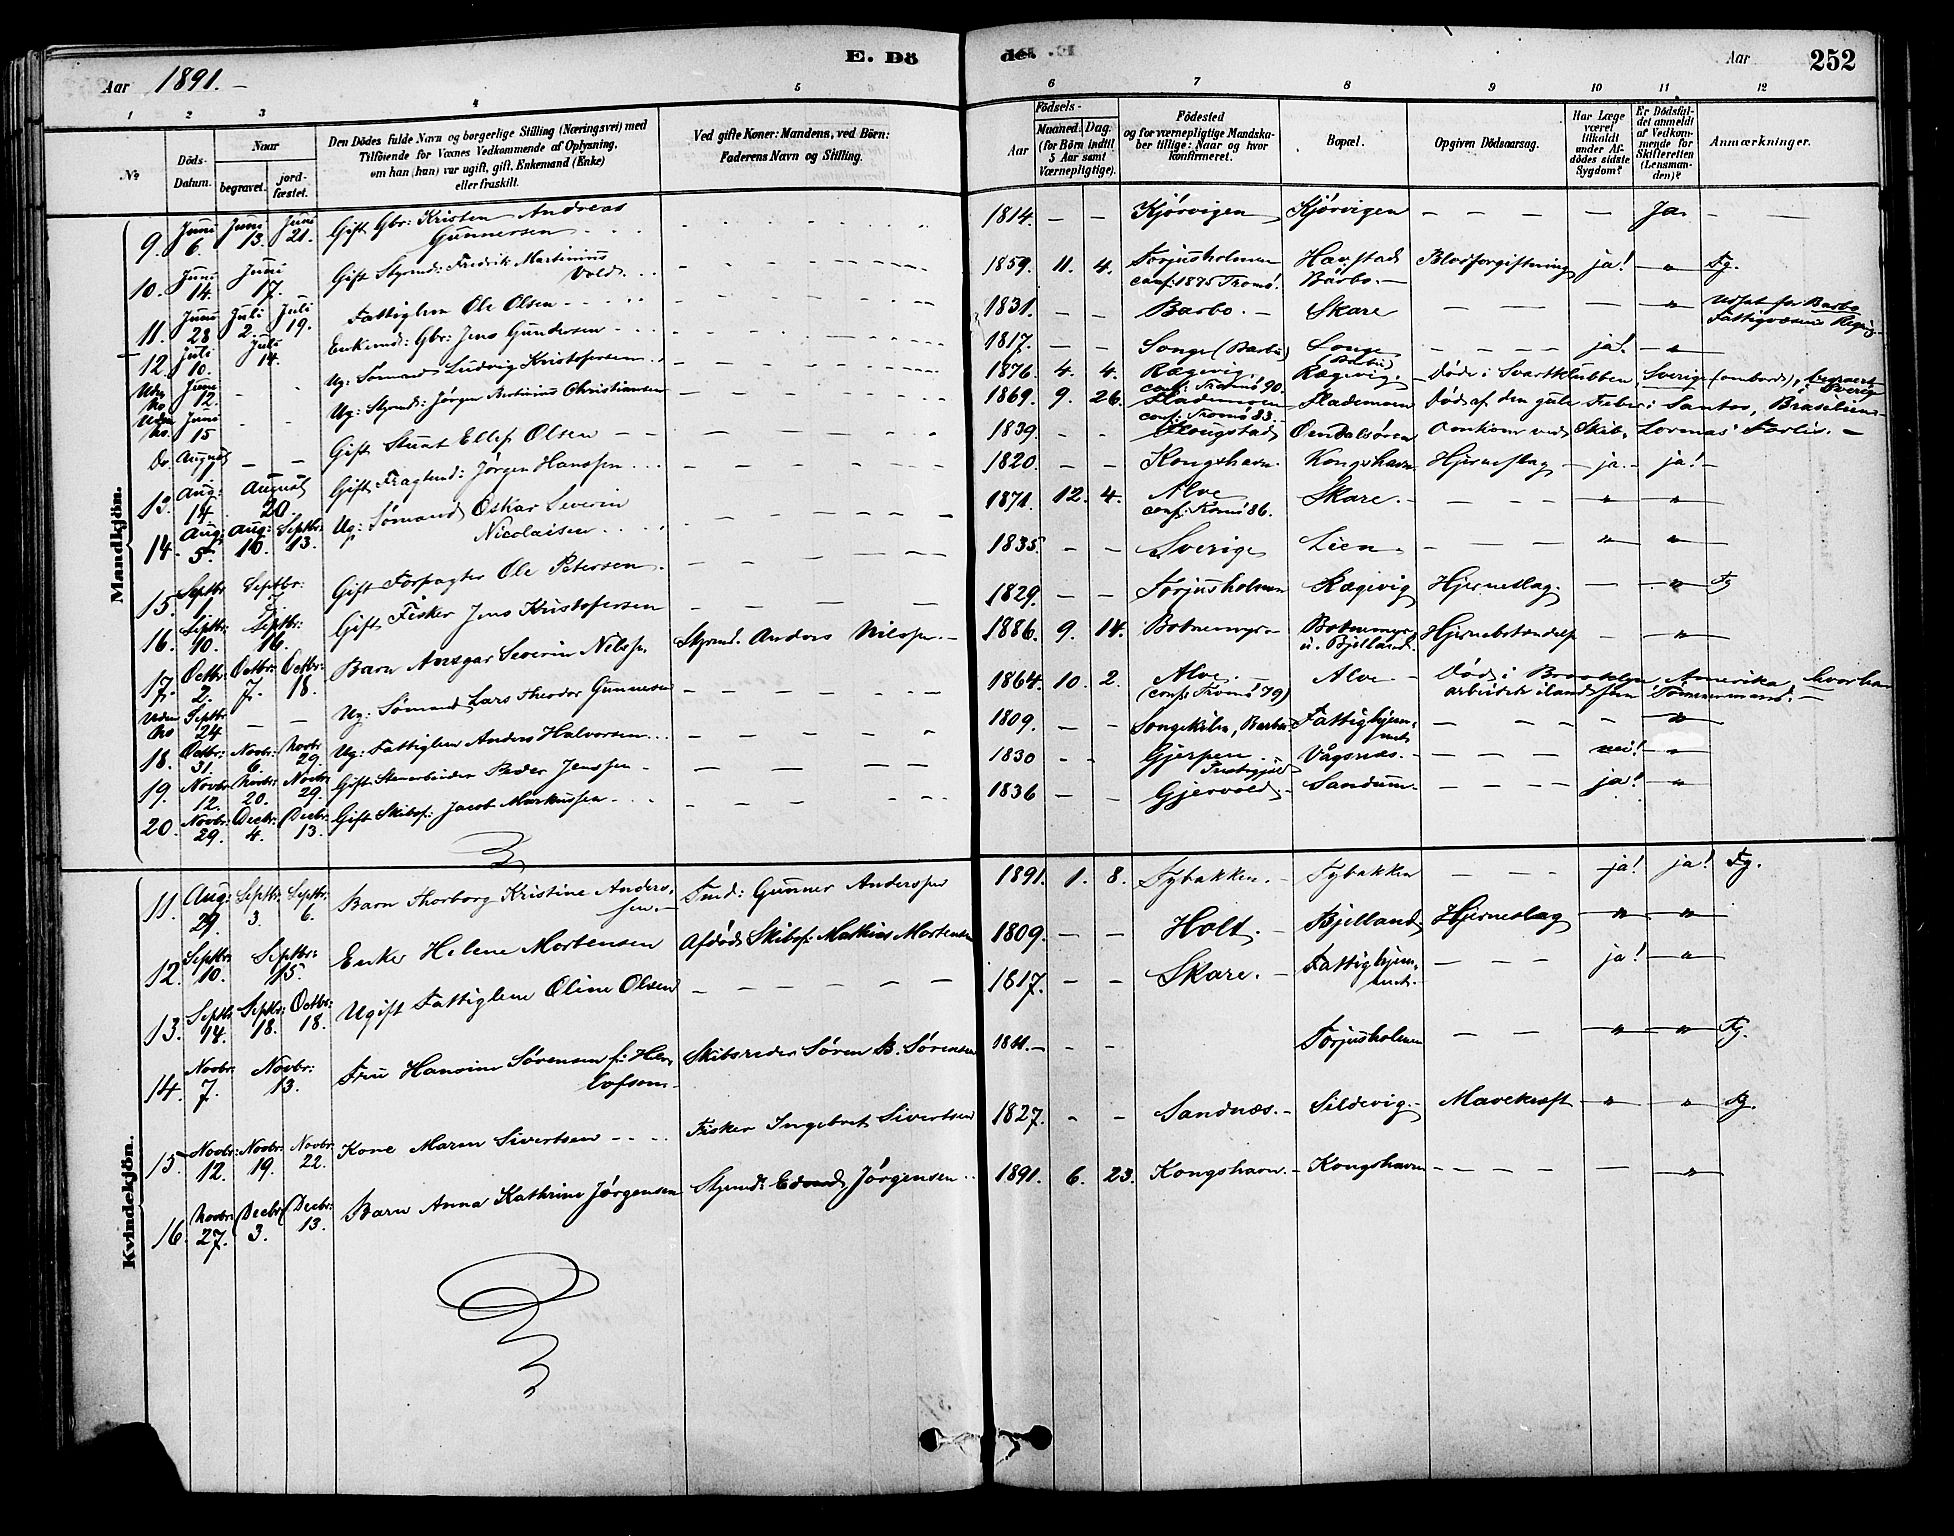 E. Dö
Aar 1891.-
1 2 3 4 5
№
Döds-Datum.
Naar
begravet.
jord-fæstet.
Den Dödes fulde Navn og borgerlige Stilling (Næringsvei) med
Tilföiende for Voxnes Vedkommende af Oplysning,
om han (hun) var ugift, gift, Enkemand (Enke)
eller fraskilt.
Ved gifte Koner: Mandens, ved Börn:
Faderens Navn og Stilling.
Mandkjön.
9. Juni 6. Juni 13. Juni 21. Gift Gbr: Kristen Andreas
Gunnersen
10. Juni 14. Juni 17. Gift Styrmd: Fredrik Martinius
Vold
11. Juni 28 Juli 2. Juli 19. Fattiglem Ole Olsen
12. Juli 10. Juli 14. Enkemd: Gbr: Jens Gundersen
Uden No Juni 12 Ug: Sømand Ludvig Kristofersen
Uden No. Juni 15 Ug: Styrmd: Jørgen Bertinius Christiansen
Do. August 1 Gift Stuat Ellef Olsen
13. Aug: 14. August 20. Gift Fragtmd: Jørgen Hanssen
14. Aug: 5. Aug: 10. Septbr: 13. Ug: Sømand Oskar Severin
Nicolaisen
15. Septbr 1 Septbr: 7. Gift Forpagter Ole Petersen.
16. Septbr: 10. Septbr: 16. Gift Fisker Jens Kristofersen
17. Octbr: 2. Octbr: 7. Octbr: 18. Barn Ansgar Severin Nilssen Styrmd. Anders Nilssen.
Uden No Septbr 24 Ug: Sømand Lars Theodor Gunnersen
18. Octbr: 31. Novbr: 6. Novbr 29. Ug: Fattiglem Anders Halvorsen
19. Novbr 12. Novbr: 20. Novbr 29. Gift Stenarbeider Peder Jenssen
20. Novbr: 29. Decbr: 4. Decbr: 13. Gift Skibsf: Jacob Markussen
Kvindekjön.
11. Aug: 29. Septbr: 3. Septbr: 6. Barn Thorborg Kristine Anders-
sen. Tmd: Gunner Anderssen
12. Septbr: 10. Septbr: 15. Enke Helene Mortensen Afdød Skibsf: Mathias Mortensen
13. Septbr 14. Septbr: 18. Octbr: 18. Ugift Fattiglem Oline Olsen
14. Novbr: 7. Novbr: 13. Fru Hanvine Sørensen f: Her-
lofsen Skibsreder Søren B. Sørensen
15. Novbr: 12. Novbr: 19. Novbr: 22. Kone Maren Sivertsen Fisker Ingebret Sivertsen
16. Novbr: 27. Decbr: 3. Decbr: 13. Barn Anna Kathrine Jørgensen Styrmd: Edvard Jørgensen
de.
Aar 252
6 7 8 9 10 11 12
Födsels-
Aar
Maaned. Dag.
(for Börn indtil
5 Aar samt
Værnepligtige).
Födested
og for værnepligtige Mandska-
ber tillige: Naar og hvor
konfirmeret.
Bopæl.
Opgiven Dödsaarsag.
Har Læge
været
tilkaldt
under Af-
dödes sidste
Sygdom?
Er Dödsfal-
det anmeldt
af Vedkom-
mende for
Skifteretten
(Lensman-
den)?
Anmærkninger.
1814 Kjørvigen Kjørvigen Ja
1859. 11. 4. Torjusholmen Havstad Blodforgiftning ja! " Tg.
conf: 1875 Tromø. Barbo.
1831. Barbo. Skare " Udsat for Barbo
Fattigvæsens Regning
1817. Songe (Barbo) Songe (Barbo) ja! "
1876. 4. 4. Rægevig, Rægevig. Døde i Svartklubben, Sverige (ombord), begravet
conf: Tromø 90. i Sverige
1869. 9. 26. Flademoen Flademoen Død af den gule Feber i Santos, Brasilien
conf: Tromø 83.
1839. Ougstad Omkom ved Skib. Forlis.
1820. Kongshavn Kongshavn Hjerneslag ja. ja!
1871. 12. 4. Alve Skare. " "
conf: Tromø 86.
1835. Sverige Lien " "
1829. Torjusholmen Rægevig Hjerneslag. " Tg
1886. 9. 14. Botnemyr Botnemyr Hjernebetændelse "
u. Bjelland
1864. 10. 2. Alve. Alve Død i Brooklyn, Amerika, hvor han
(conf: Tromø 79) arbeidede ilands som Tømmermand.
1809. Songekilen, Barbo Fattighjem- "
met
1830 Gjerpen Vågsnes. nei! "
Præstegjeld
1836 Gjervold Sandum ja! "
1891. 1. 8. Tybakken. Tybakken ja! ja! Tg.
1809. Holt. Bjelland Hjerneslag " "
1817. Skare. Fattighjem- ja! "
met
1811. Torjusholmen " " Tg.
1827. Sandnæs. Sildevig. Mavekræft " " Tg.
1891. 6. 23. Kongshavn. Kongshavn "